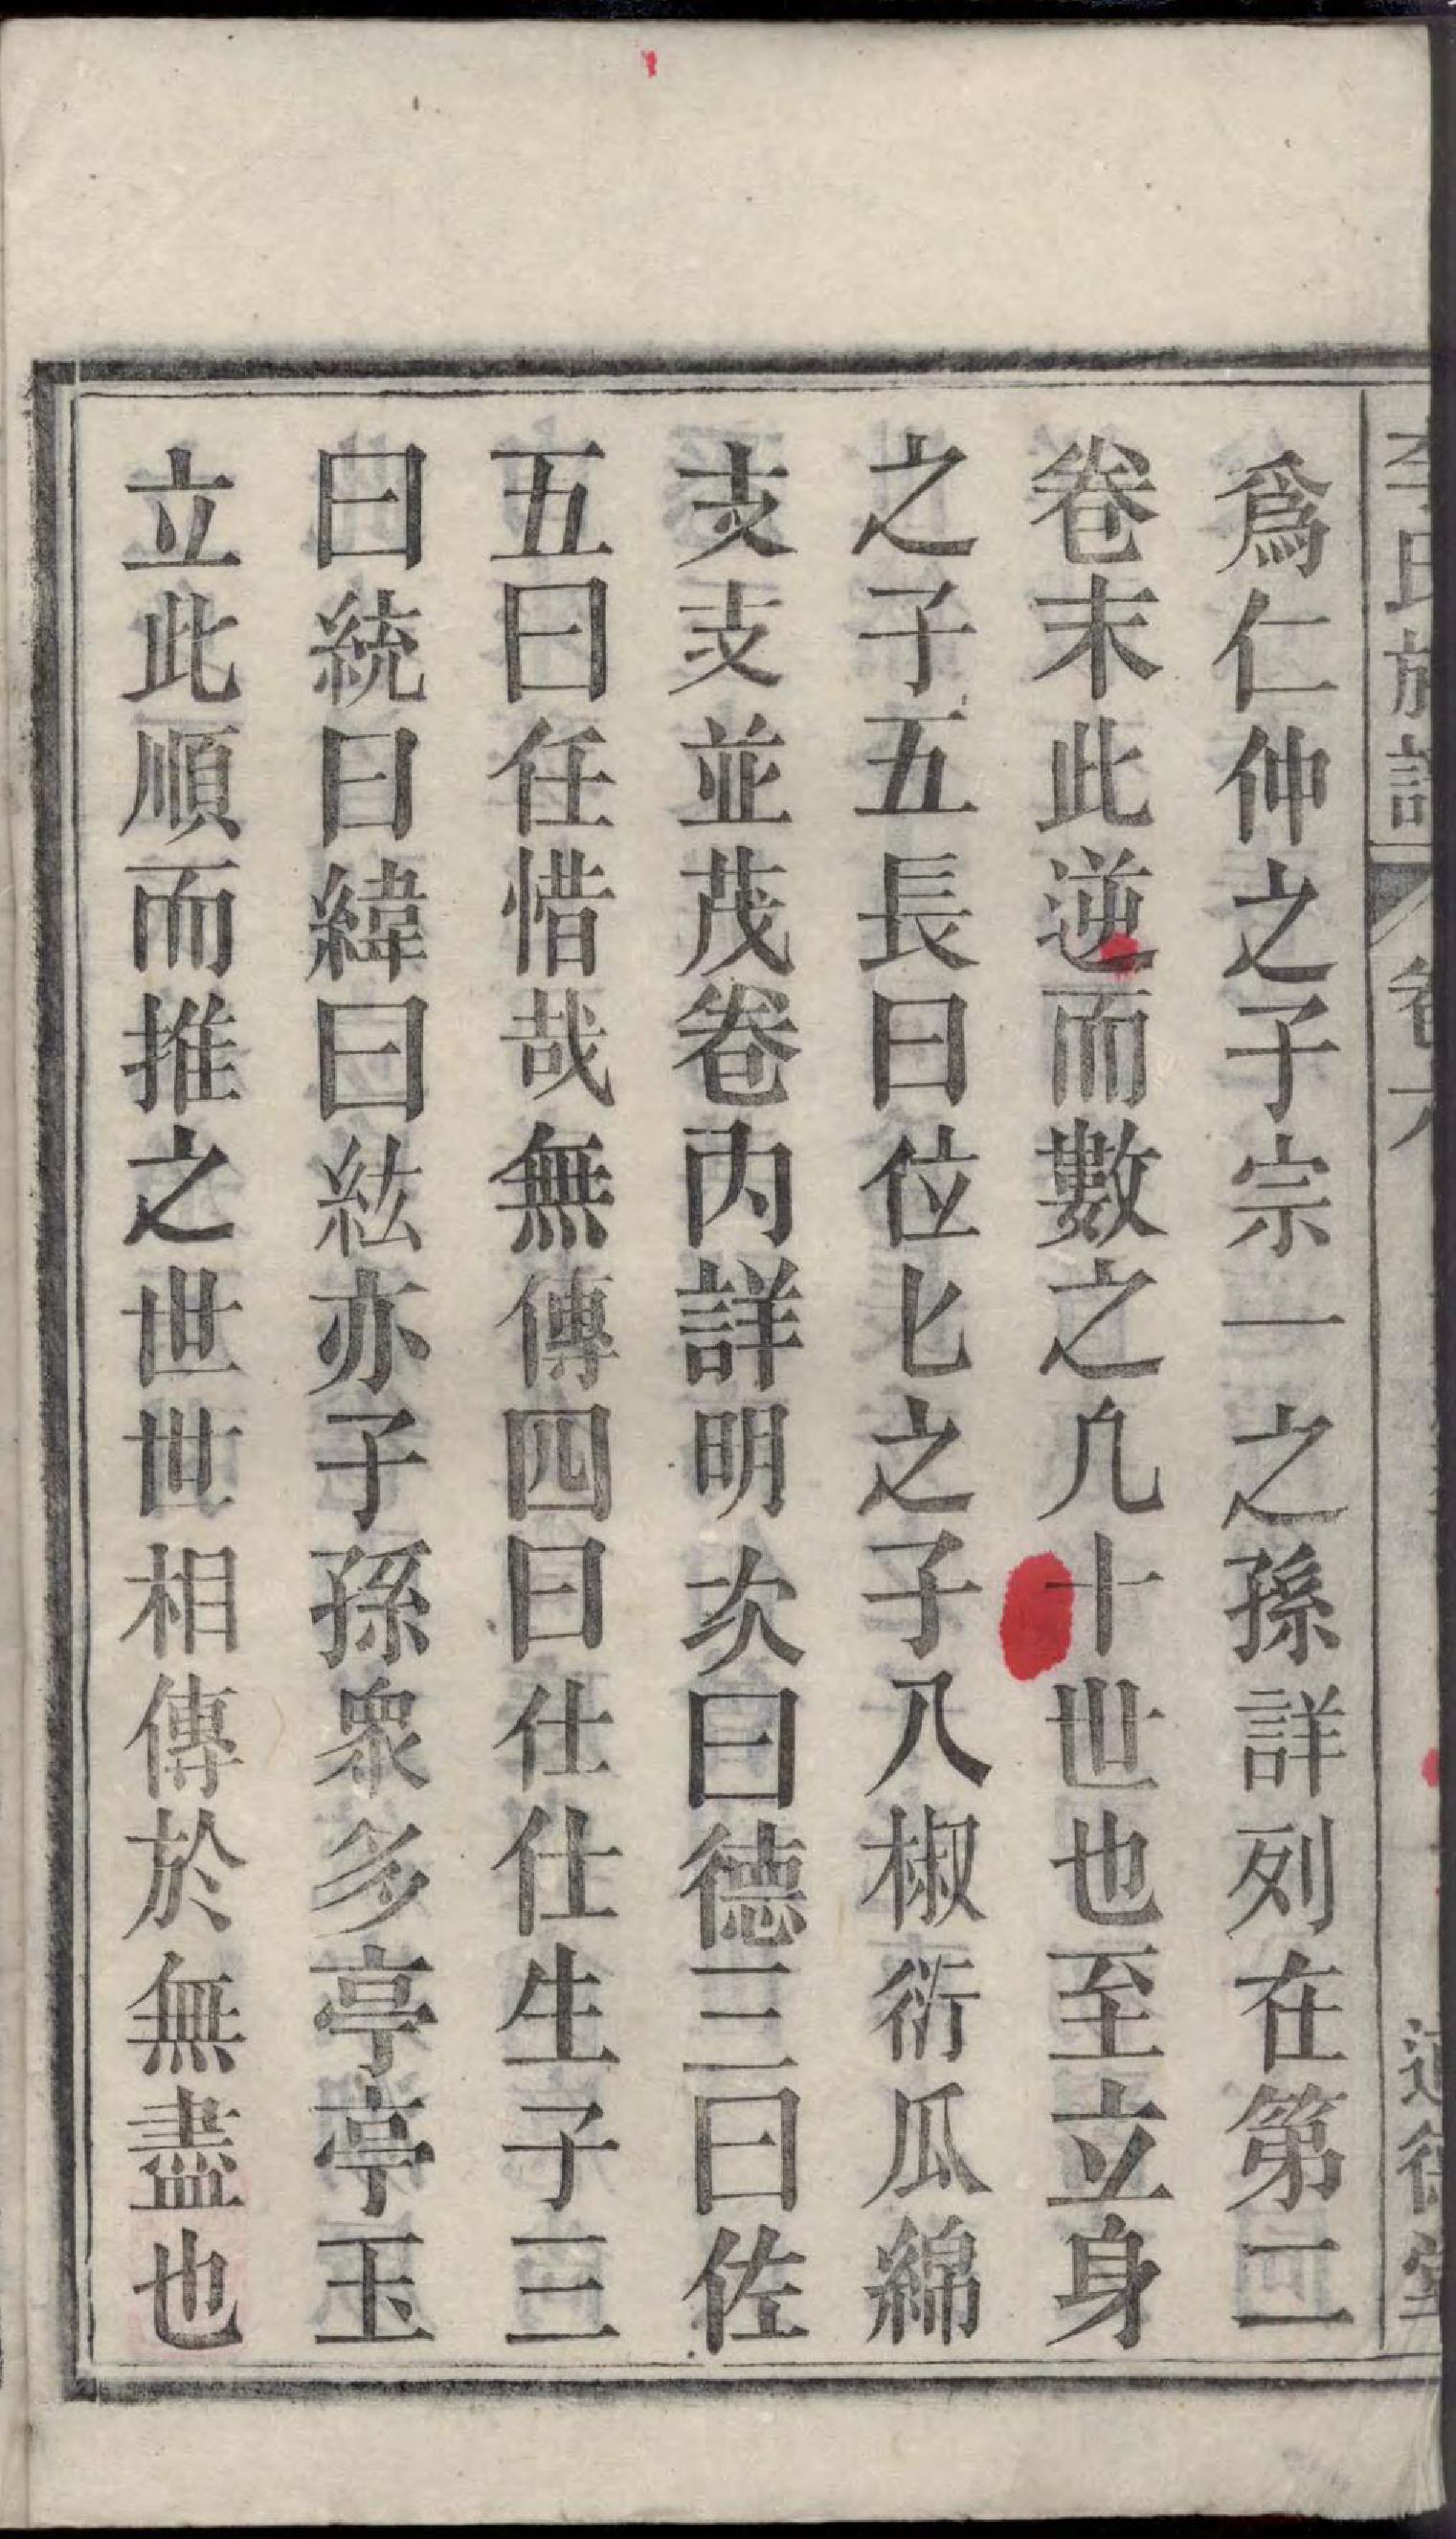 李氏族譜
卷六
道德堂
爲仁仲之子宗一之孫詳列在第二
卷末此逆而數之凢十世也至立身
之子五長曰位匕之子八椒衍瓜綿
支支並茂卷内詳明次曰德三曰佐
五曰任惜哉無傳四曰仕仕生子三
曰統曰緯曰紘亦子孫衆多亭亭玉
立此順而推之世世相傳於無盡也